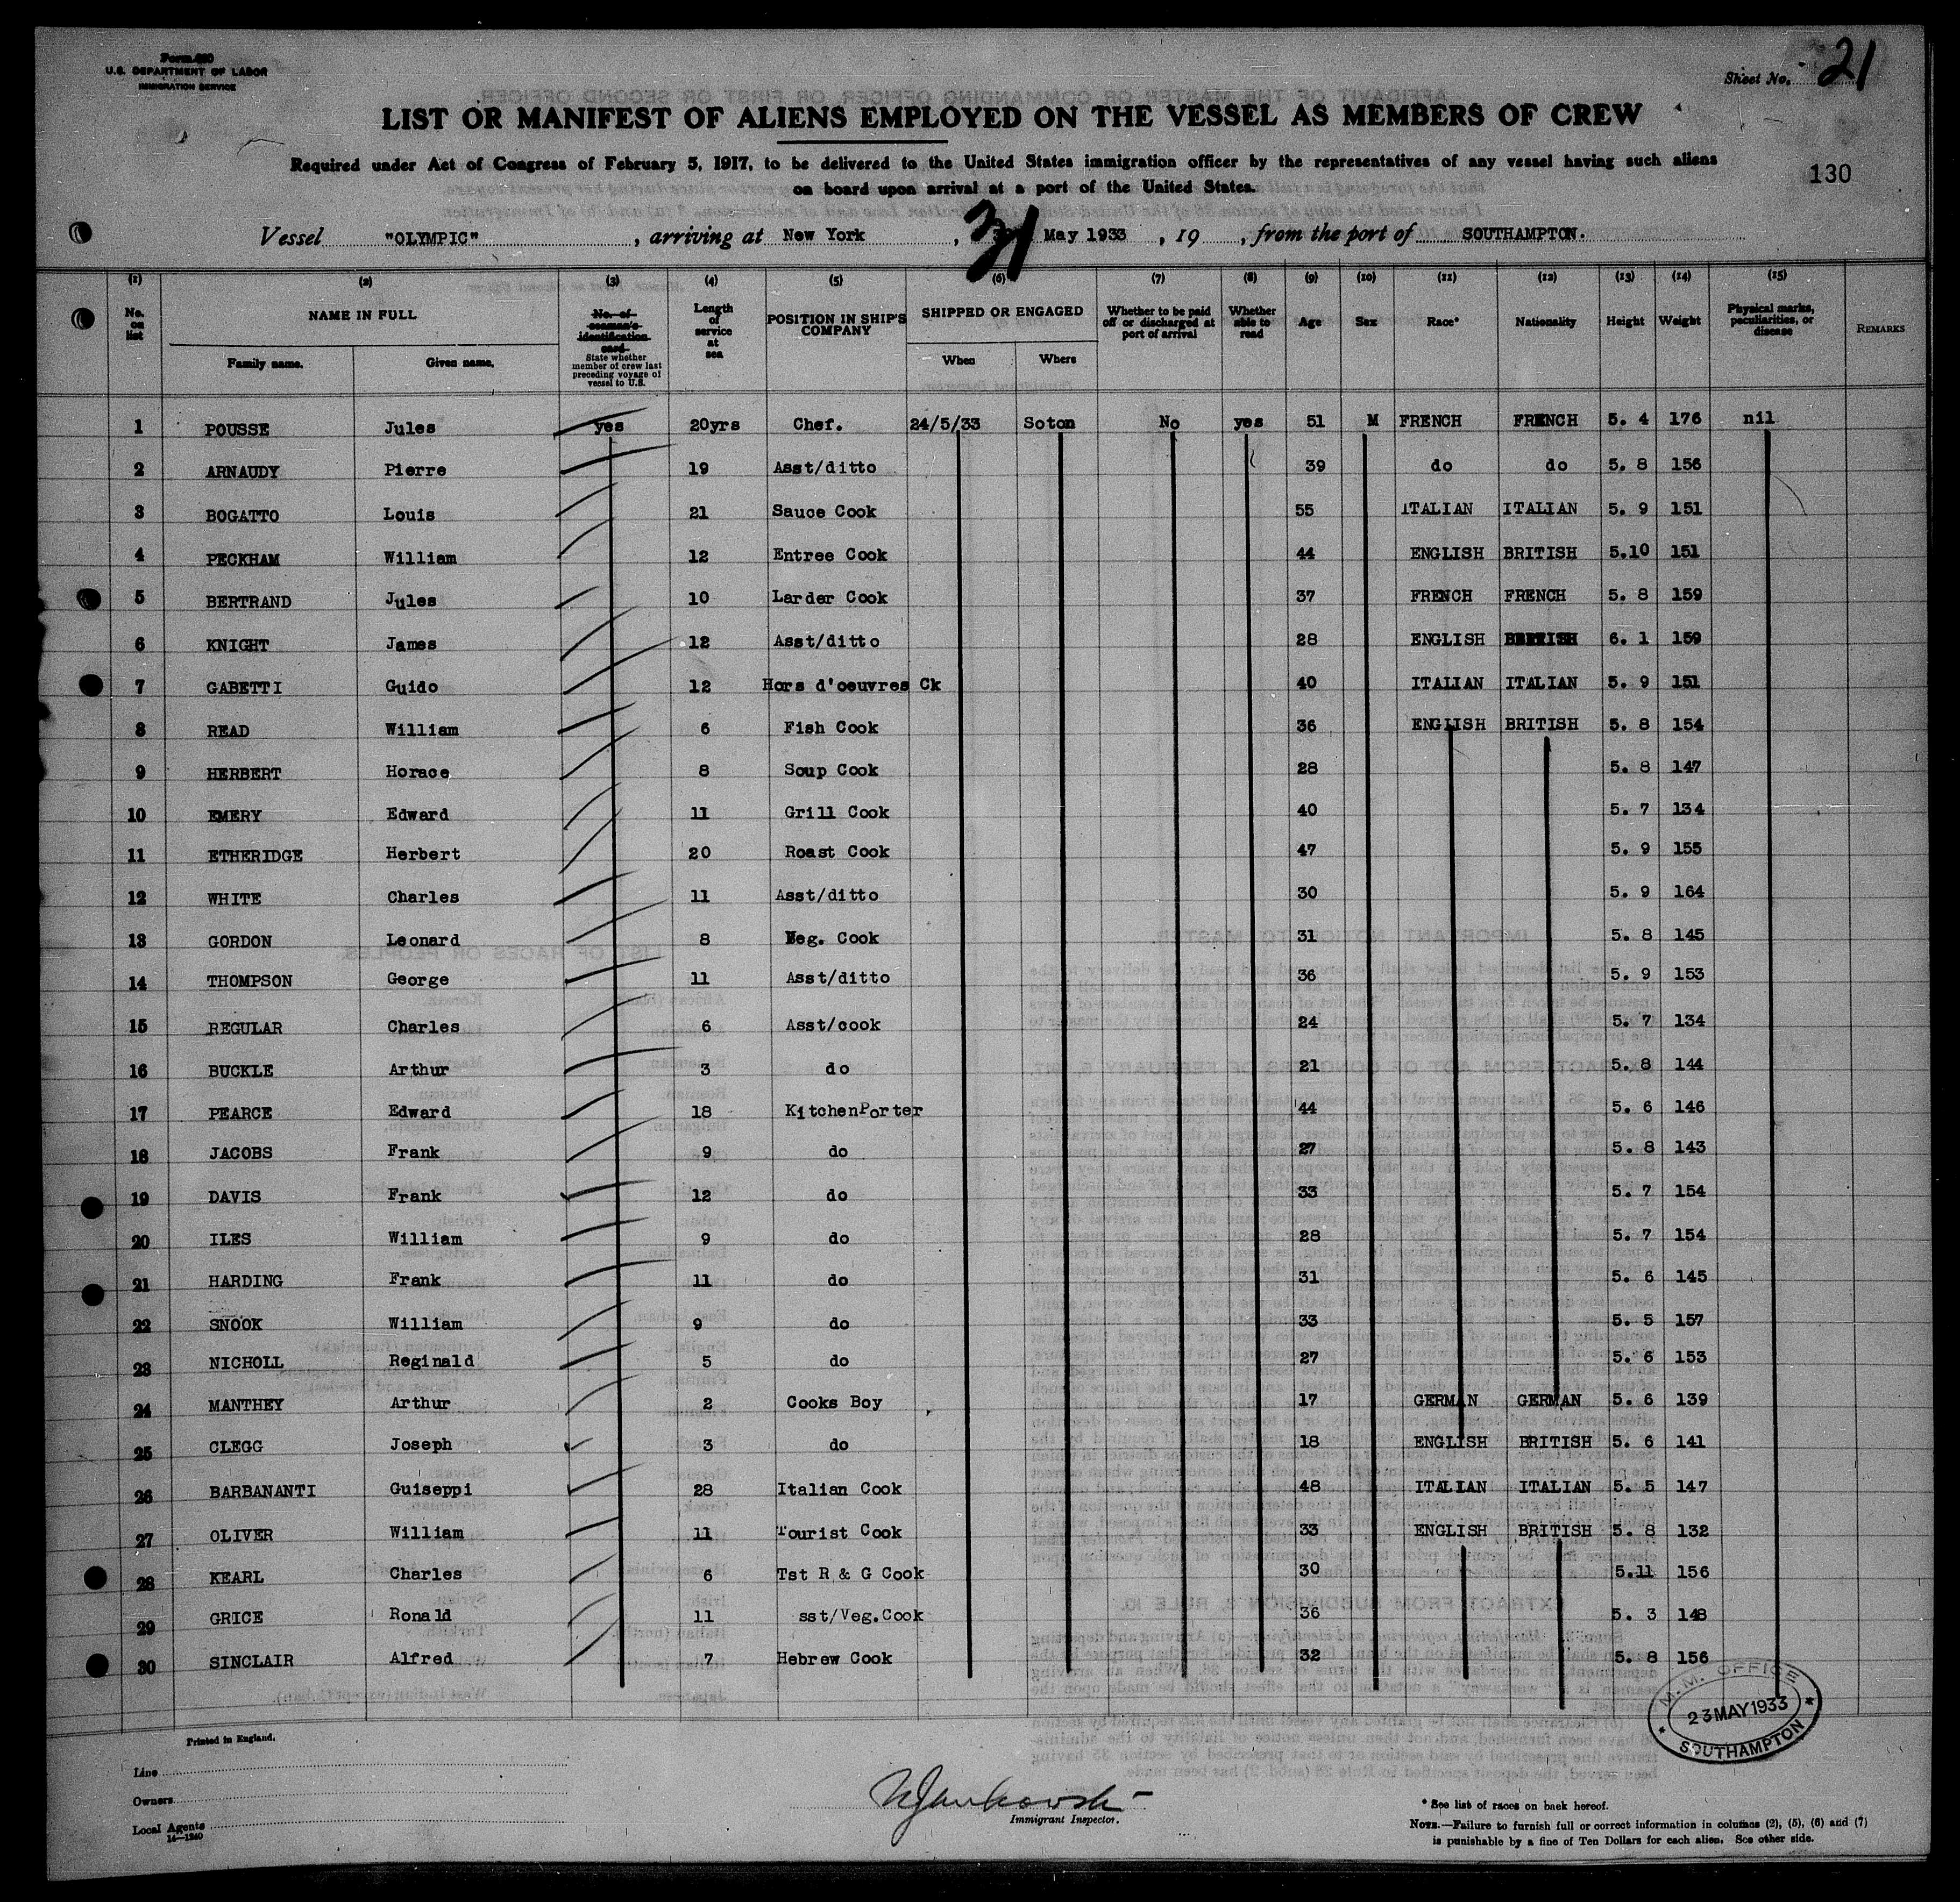 Form 680
U.S. DEPARTMENT OF LABOR
IMMIGRATION SERVICE
Sheet No. 21
LIST OR MANIFEST OF ALIENS EMPLOYED ON THE VESSEL AS MEMBERS OF CREW
Required under Act of Congress of February 5, 1917, to be delivered to the United States immigration officer by the representatives of any vessel having such aliens
on board upon arrival at a port of the United States.
130
Vessel "OLYMPIC", arriving at New York, 31 May 1933, 19, from the port of SOUTHAMPTON.
(1) (2) (3) (4) (5) (6) (7) (8) (9) (10) (11) (12) (13) (14) (15)
No. on list
NAME IN FULL
Family name. Given name.
No. of seaman's identification card
State whether member of crew last preceding voyage of vessel to U.S.
Length of service at sea
POSITION IN SHIP'S COMPANY
SHIPPED OR ENGAGED
When Where
Whether to be paid off or discharged at port of arrival
Whether able to read
Age
Sex
Race*
Nationality
Height
Weight
Physical marks, peculiarities, or disease
REMARKS
1 POUSSE Jules yes 20yrs Chef. 24/5/33 Soton No yes 51 M FRENCH FRENCH 5. 4 176 nil
2 ARNAUDY Pierre 19 Asst/ditto 39 do do 5. 8 156
3 BOGATTO Louis 21 Sauce Cook 55 ITALIAN ITALIAN 5. 9 151
4 PECKHAM William 12 Entree Cook 44 ENGLISH BRITISH 5.10 151
5 BERTRAND Jules 10 Larder Cook 37 FRENCH FRENCH 5. 8 159
6 KNIGHT James 12 Asst/ditto 28 ENGLISH BRITISH 6. 1 159
7 GABETTI Guido 12 Hors d'oeuvres Ck 40 ITALIAN ITALIAN 5. 9 151
8 READ William 6 Fish Cook 36 ENGLISH BRITISH 5. 8 154
9 HERBERT Horace 8 Soup Cook 28 5. 8 147
10 EMERY Edward 11 Grill Cook 40 5. 7 134
11 ETHERIDGE Herbert 20 Roast Cook 47 5. 9 155
12 WHITE Charles 11 Asst/ditto 30 5. 9 164
13 GORDON Leonard 8 Veg. Cook 31 5. 8 145
14 THOMPSON George 11 Asst/ditto 36 5. 9 153
15 REGULAR Charles 6 Asst/cook 24 5. 7 134
16 BUCKLE Arthur 3 do 21 5. 8 144
17 PEARCE Edward 18 KitchenPorter 44 5. 6 146
18 JACOBS Frank 9 do 27 5. 8 143
19 DAVIS Frank 12 do 33 5. 7 154
20 ILES William 9 do 28 5. 7 154
21 HARDING Frank 11 do 31 5. 6 145
22 SNOOK William 9 do 33 5. 5 157
23 NICHOLL Reginald 5 do 27 5. 6 153
24 MANTHEY Arthur 2 Cooks Boy 17 GERMAN GERMAN 5. 6 139
25 CLEGG Joseph 3 do 18 ENGLISH BRITISH 5. 6 141
26 BARBANANTI Guiseppi 28 Italian Cook 48 ITALIAN ITALIAN 5. 5 147
27 OLIVER William 11 Tourist Cook 33 ENGLISH BRITISH 5. 8 132
28 KEARL Charles 6 Tst R & G Cook 30 5.11 156
29 GRICE Ronald 11 sst/Veg.Cook 36 5. 3 148
30 SINCLAIR Alfred 7 Hebrew Cook 32 5. 8 156
M.M. OFFICE
23 MAY 1933
SOUTHAMPTON
Printed in England.
Line
Owners
Local Agents
14—1240
Immigrant Inspector.
* See list of races on back hereof.
NOTE.—Failure to furnish full or correct information in columns (2), (5), (6) and (7)
is punishable by a fine of Ten Dollars for each alien. See other side.